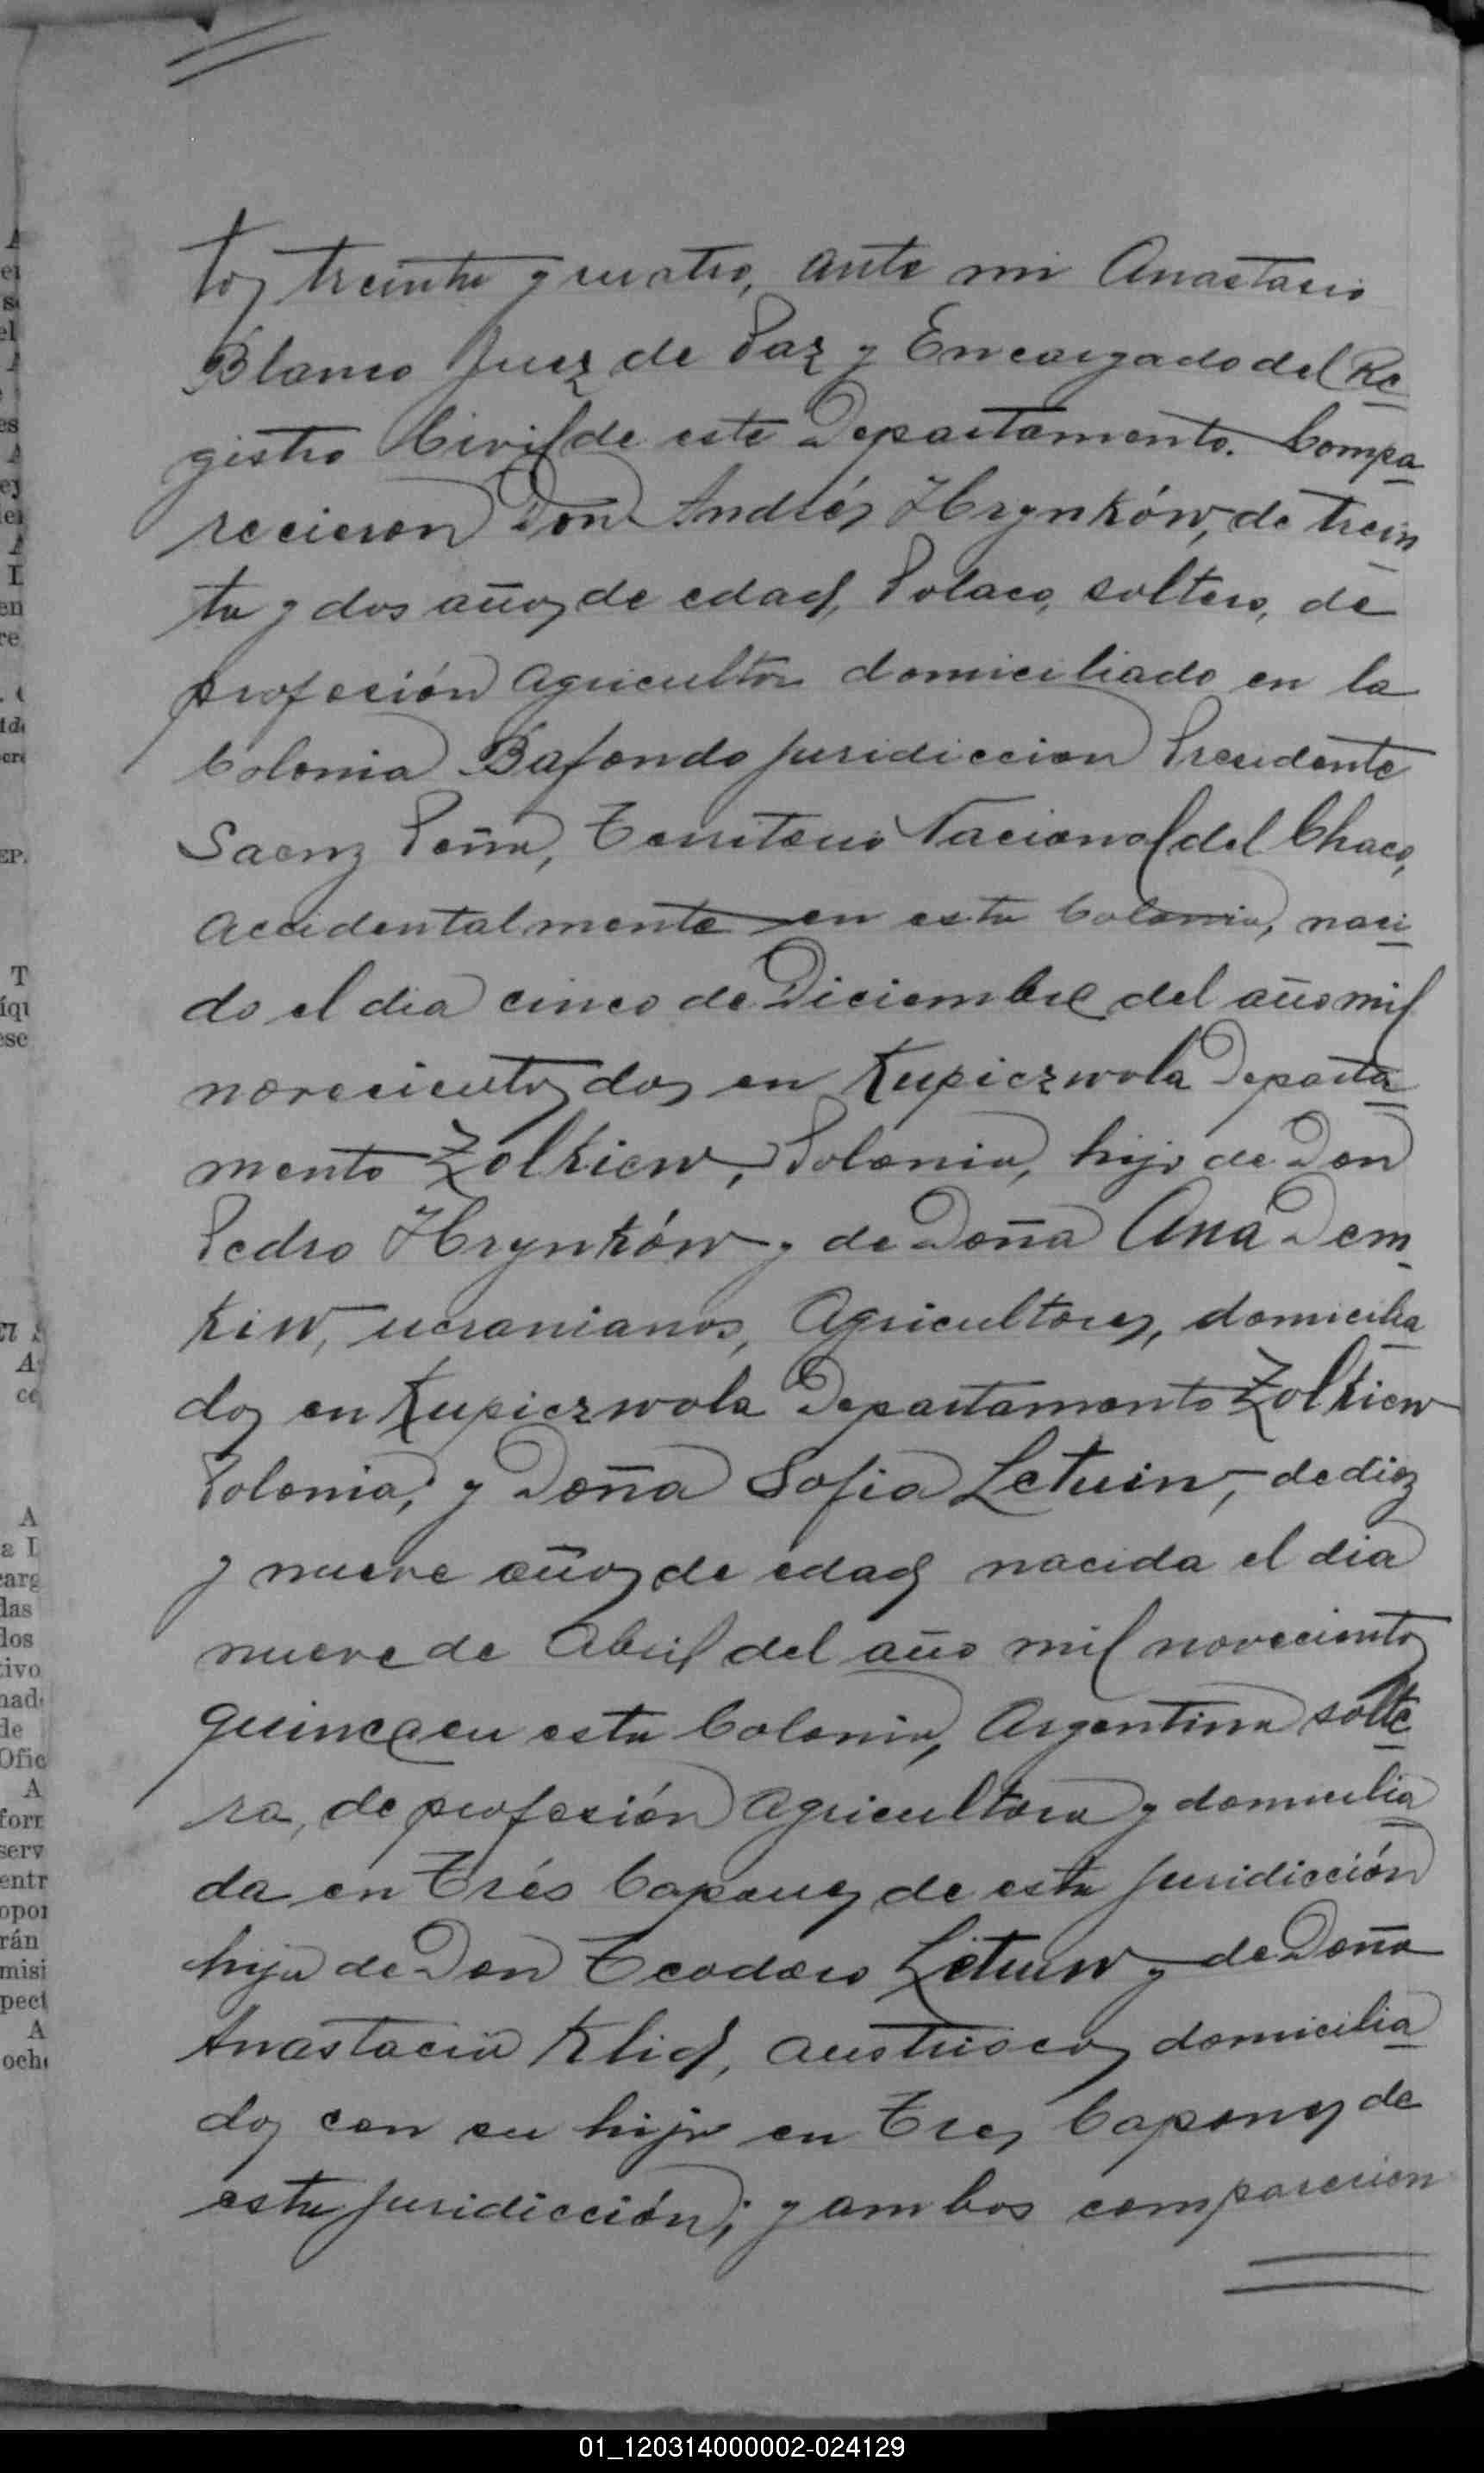 tos treinta y cuatro, ante mi Anastacio
Blanco Juez de Paz y Encargado del Re
gistro Civil de este Departamento. Compa
recieron Don Andrés Hrynków, de trein
ta y dos años de edad, Polaco, soltero, de
profesión agricultor domiciliado en la
Colonia Bajondo juridiccion Presidente
Saenz Peña, Territorio Nacional del Chaco,
accidentalmente en esta Colonia, naci
do el dia cinco de Diciembre del año mil
novecientos dos en Kupiczwola Departa
mento Zolkiew, Polonia, hijo de Don
Pedro Hrynków y de Doña Ana Dem
kiw, ucranianos, Agricultores, domicilia
dos en Kupiczwola Departamento Zolkiew
Polonia; y Doña Sofia Letuin, de diez
y nueve años de edad nacida el dia
nueve de Abril del año mil novecientos
quince en esta Colonia, Argentina solte
ra, de profesión Agricultora y domicilia
da en Trés Capones de esta juridicción
hija de Don Teodoro Letuin y de Doña
Anastacia Klid, austriacos domicilia
dos con su hija en Tres Capones de
esta juridicción; y ambos comparecien
A
EP.
T
íqu
ese
A
a L
carg
das
dos
tivo
nad
de
Ofic
A
forr
serv
entr
opor
rán
misi
pect
A
och
01_120314000002-024129